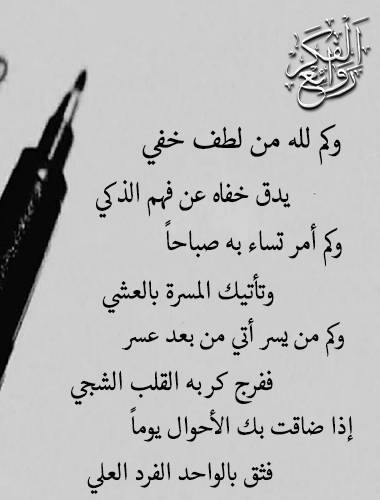 روائع الفكر
وكم لله من لطف خفي
يدق خفاه عن فهم الذكي
وكم أمر تساء به صباحاً
وتأتيك المسرة بالعشي
وكم من يسر أتي من بعد عسر
ففرج كربه القلب الشجي
إذا ضاقت بك الأحوال يوماً
فثق بالواحد الفرد العلي